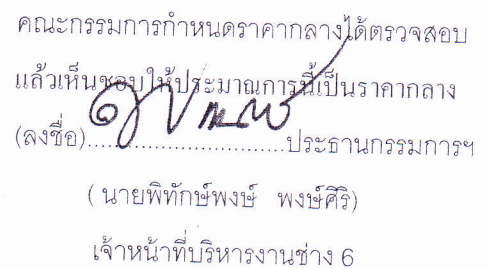 คณะกรรมการกำหนดราคากลางได้ตรวจสอบ
แล้วเห็นชอบให้ประมาณการนี้เป็นราคากลาง
(ลงชื่อ)..............................ประธานกรรมการฯ
( นายพิทักษ์พงษ์ พงษ์ศิริ)
เจ้าหน้าที่บริหารงานช่าง 6